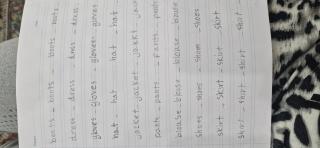 boots - boots - boots boots
dress - dress - dress - dress
gloves - gloves - gloves - gloves
hat - hat - hat - hat
jacket - jacket - jacket
pants - pants - pants - pants
blouse - blouse - blouse - blouse
shoes - shoes - shoes - shoes
skirt - skirt - skirt - skirt
shirt - shirt - shirt - shirt